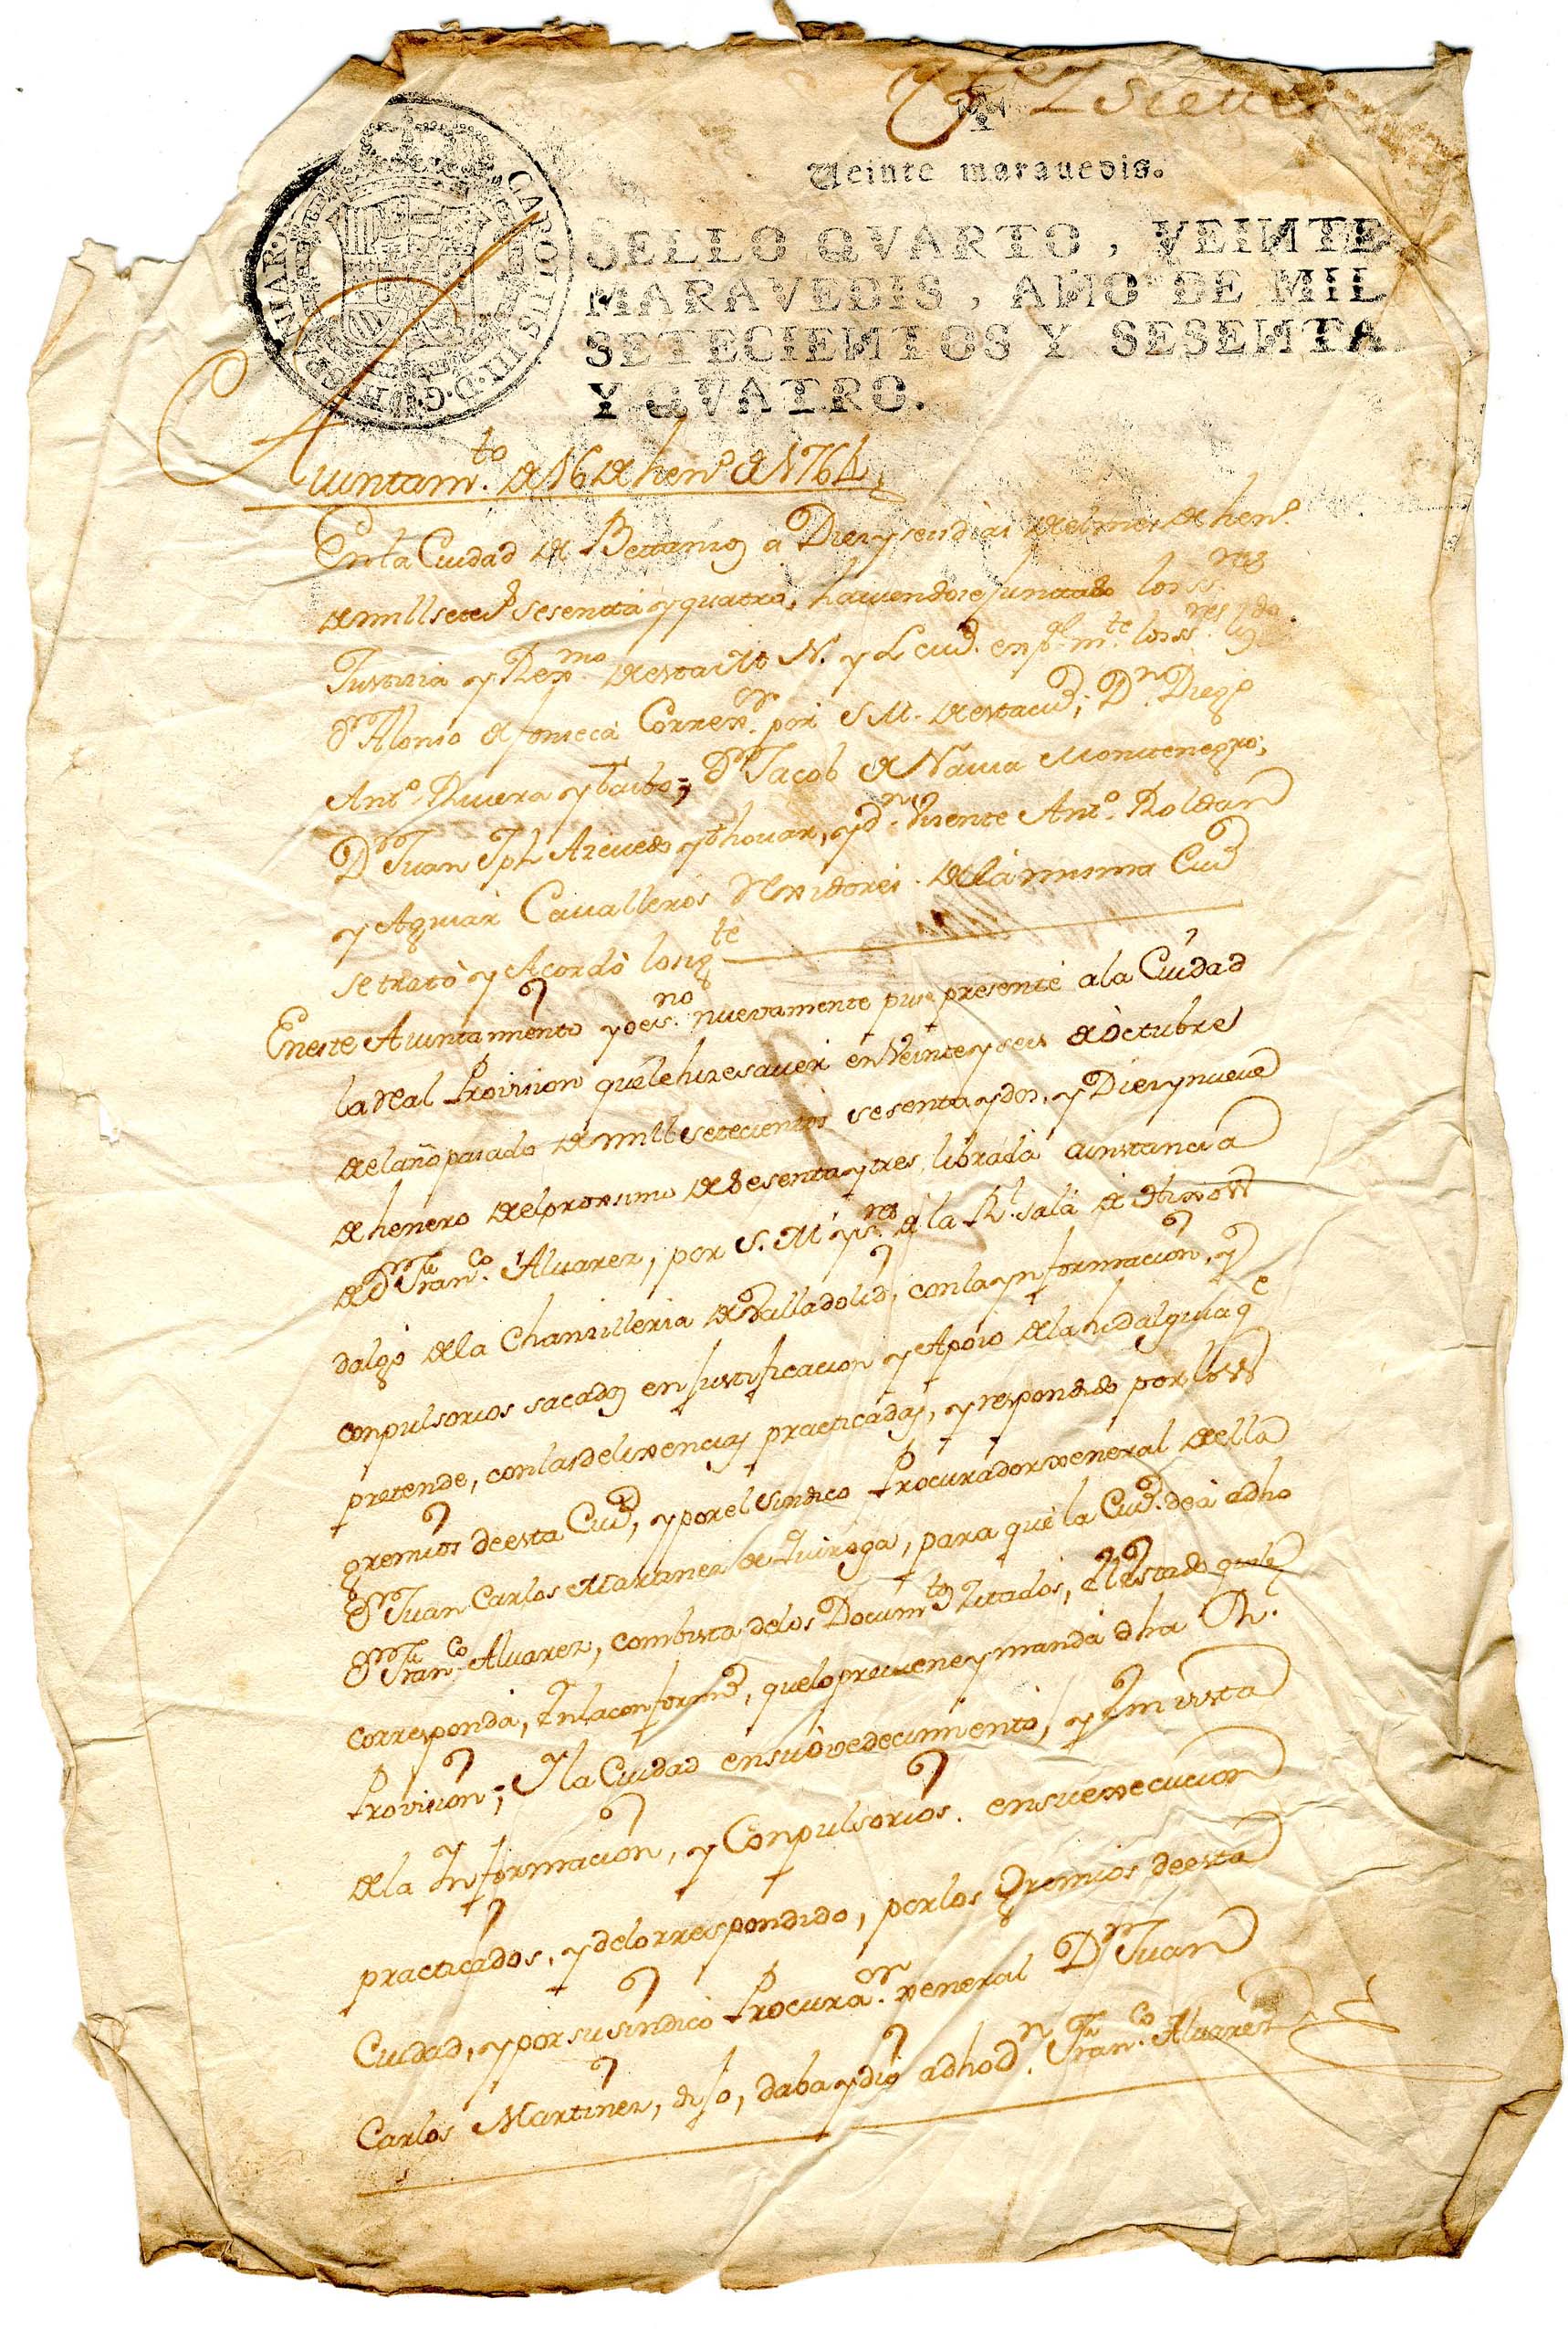 Veinte maravedis.
SELLO QVARTO, VEINTE
MARAVEDIS, AÑO DE MIL
SETECIENTOS Y SESENTA
Y QVATRO.
CAROLUS III D.G.
Aiuntam.to de 16 de hen.o de 1764
En la Ciudad de Bettanzos a Diez y seis dias del mes de hen.o
de mill setez.s sesentta y quatro, haviendose junttado los ss.res
Justizia y Rex.mo de esta M N. y L ciud. en p.al m.te los ss.res lz.do
D.n Alonso de fonseca Correx.or por S M. de esta ciud; D.n Diego
Ant.o Rivera y taibo; D.n Jacob de Navia Montenegro;
D.n Juan Jph Azevedo y thovar, y D.n Vizente Ant.o Roldan
y Aguiar Cavalleros Rexidores de la misma Ciud
se trato y Acordò lo sig.te
En este Aiuntamiento yo es.no nuevamente puse presente a la Ciudad
la Real Provision que le hize saver en Veinte y seis de octubre
del año pasado de mill setecientos sesenta y dos, y Diez y nueve
de henero del proximo de sesenta y tres, librada a instancia
de D.n Fran.co Alvarez, por S. M y s.res de la R.l sala de Hixos
dalgo de la Chanzilleria de Valladolid, con la ynformacion, y
conpulsorios sacados en justificacion y Apoio de la hidalguia q.e
pretende, con las delixencias practicadas, y respondido por los
gremios de esta Ciud, y por el Sindico Procurador xeneral de ella
D.n Juan Carlos Martinez de Quiroga, para que la Ciud. de à adho
D.n Fran.co Alvarez, com bista de los Docum.tos Zitados, el estado que le
corresponda, en la conformd, que lo previene y manda dha R.l
Provision; Y la Ciudad en su ovedecimiento, y en vista
de la Informacion, y Conpulsorios. en su execucion
practicados, y de lo rrespondido, por los Gremios de esta
Ciudad, y por su sindico Procura.or xeneral D.n Juan
Carlos Martinez, dijo, daba y dio adho D.n Fran.co Alvarez